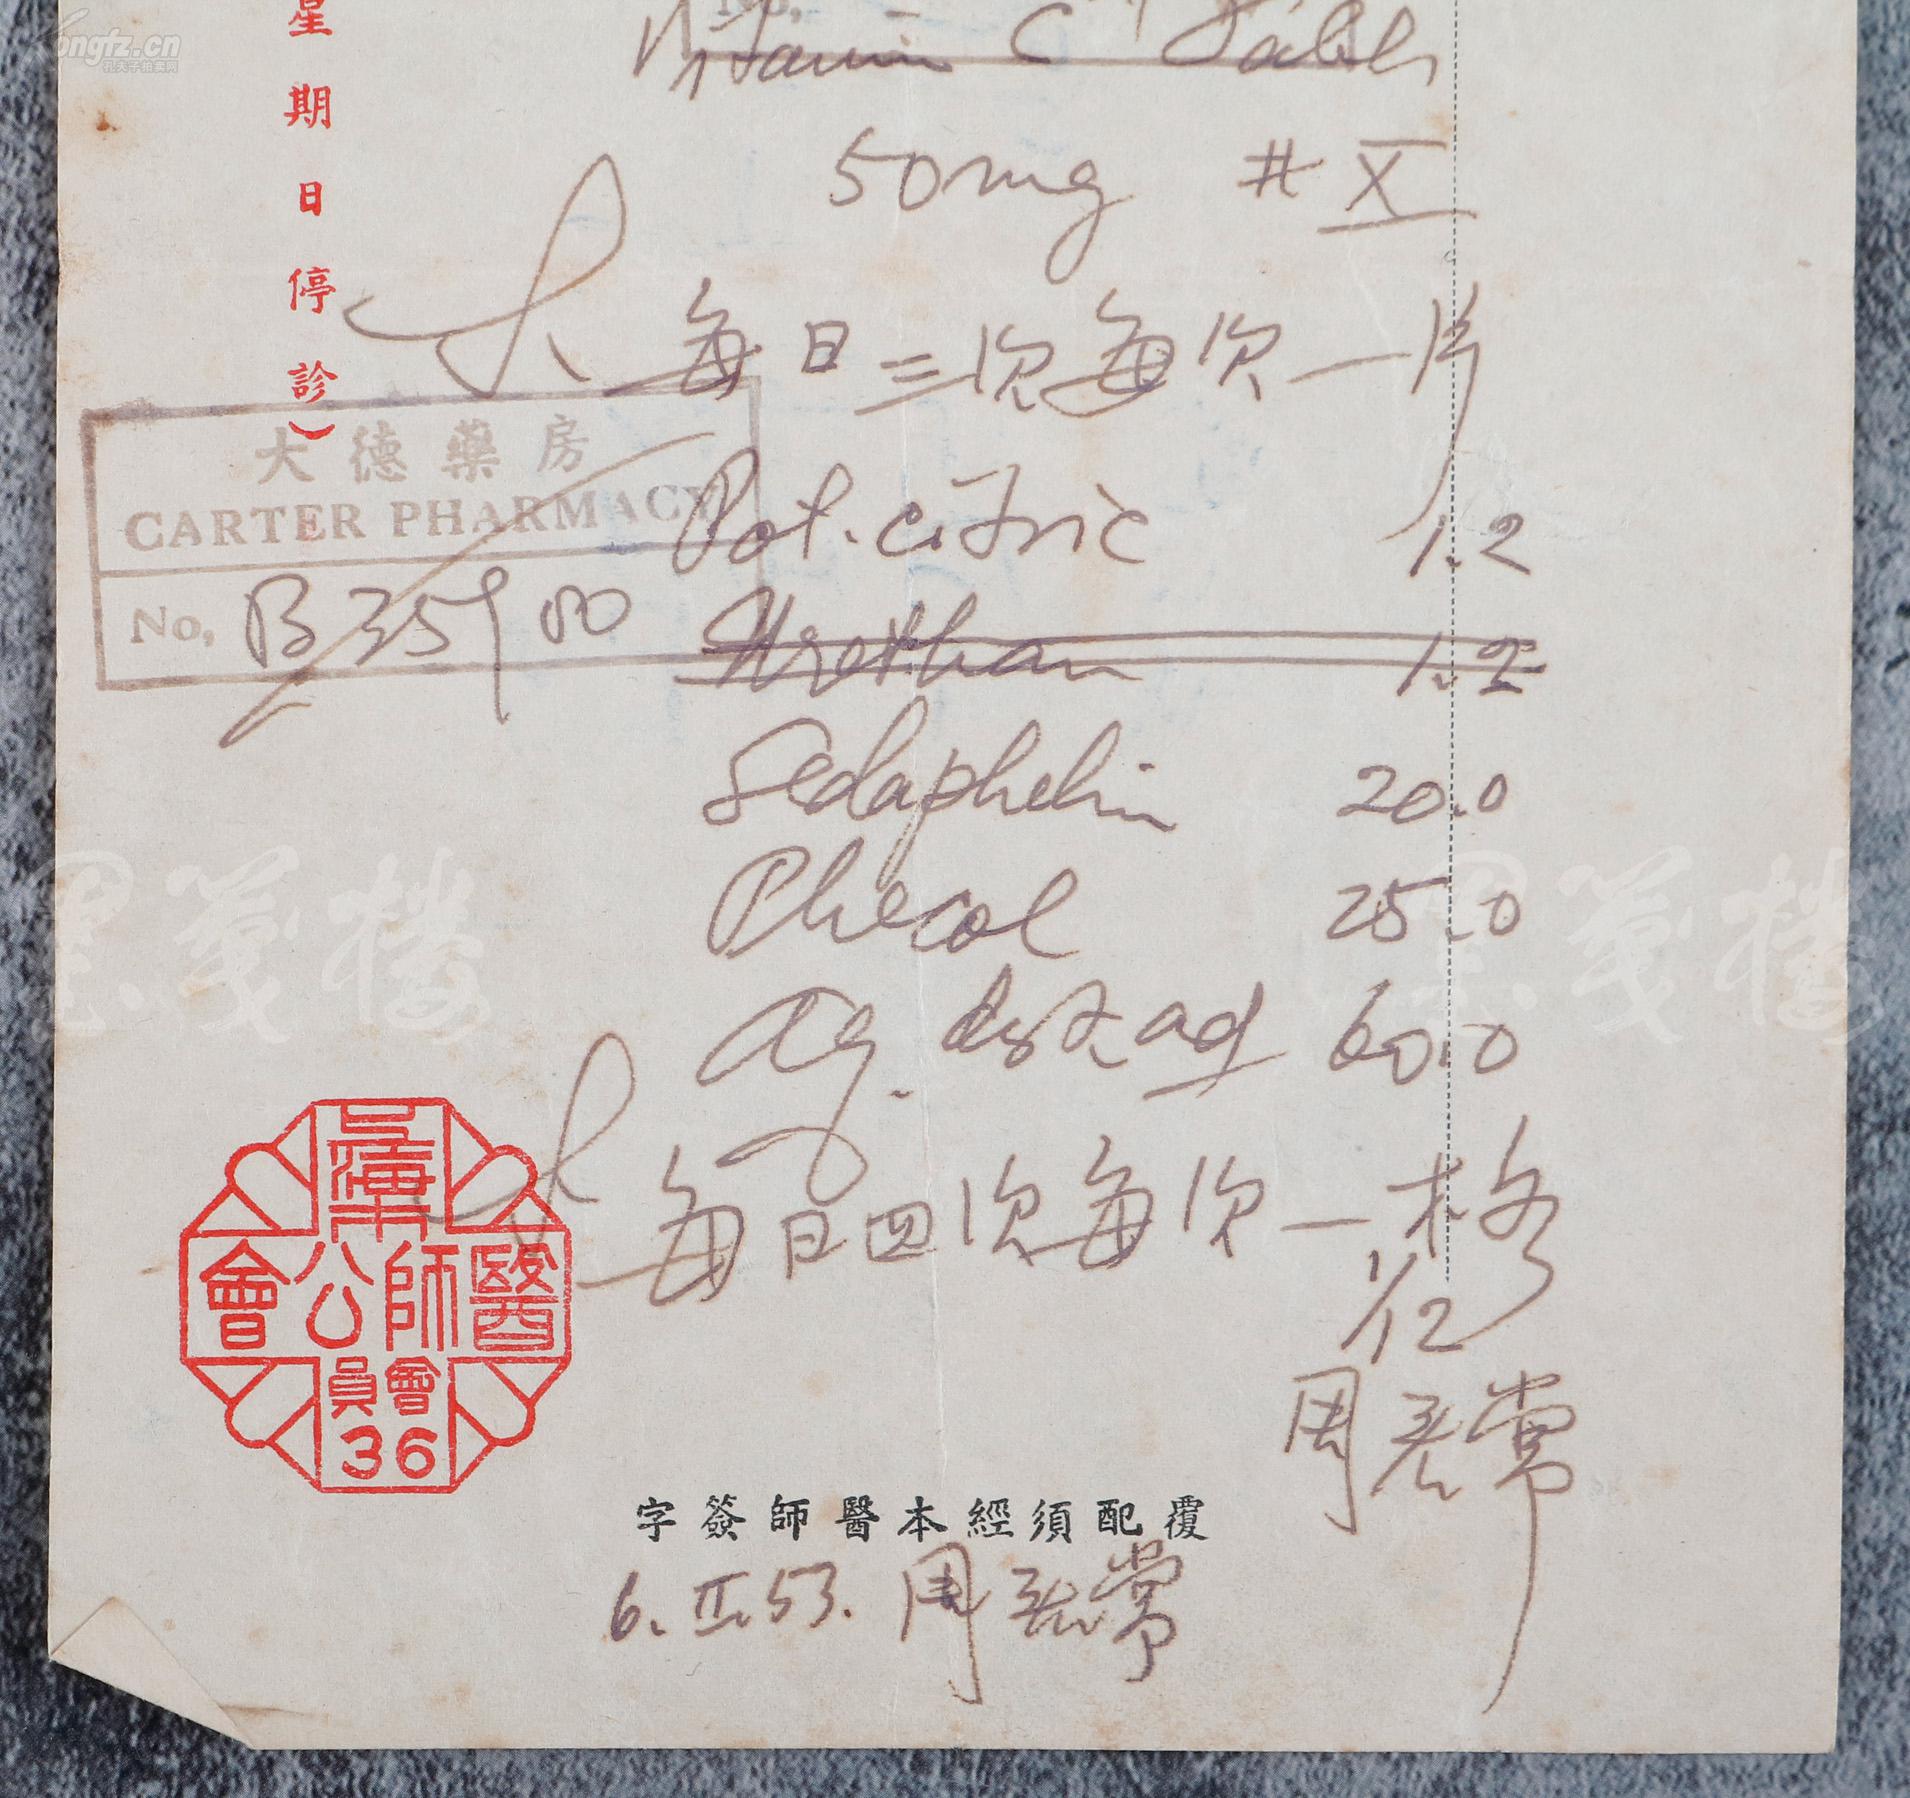 星期日停診）
Vitamin C Tabl
50mg # X
每日三次每次一片
大德藥房
CARTER PHARMACY
No, B 359 00
Pot. citric 1.2
Urethan 1.2
Sedaphelin 20.0
Phecol 25.0
aq. dest. ad 60.0
每日四次每次一格
1/12
周 常
醫師公會
會員
36
覆配須經本醫師簽字
6. II. 53. 周 常
孔夫子拍卖网
墨笺楼
墨笺楼